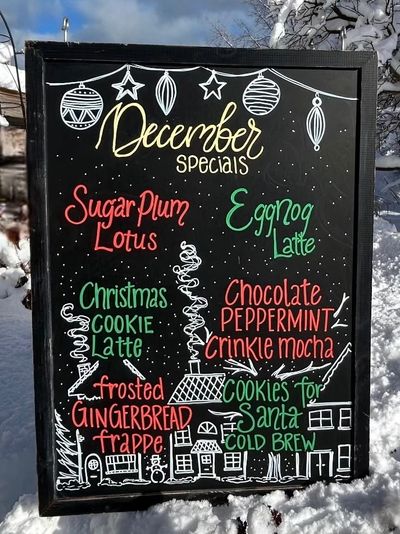 December
SPECIALS
Sugar Plum
Lotus
Eggnog
Latte
Christmas
COOKIE
Latte
Chocolate
PEPPERMINT
Crinkle mocha
frosted
GINGERBREAD
frappe
COOKIES for
Santa
COLD BREW